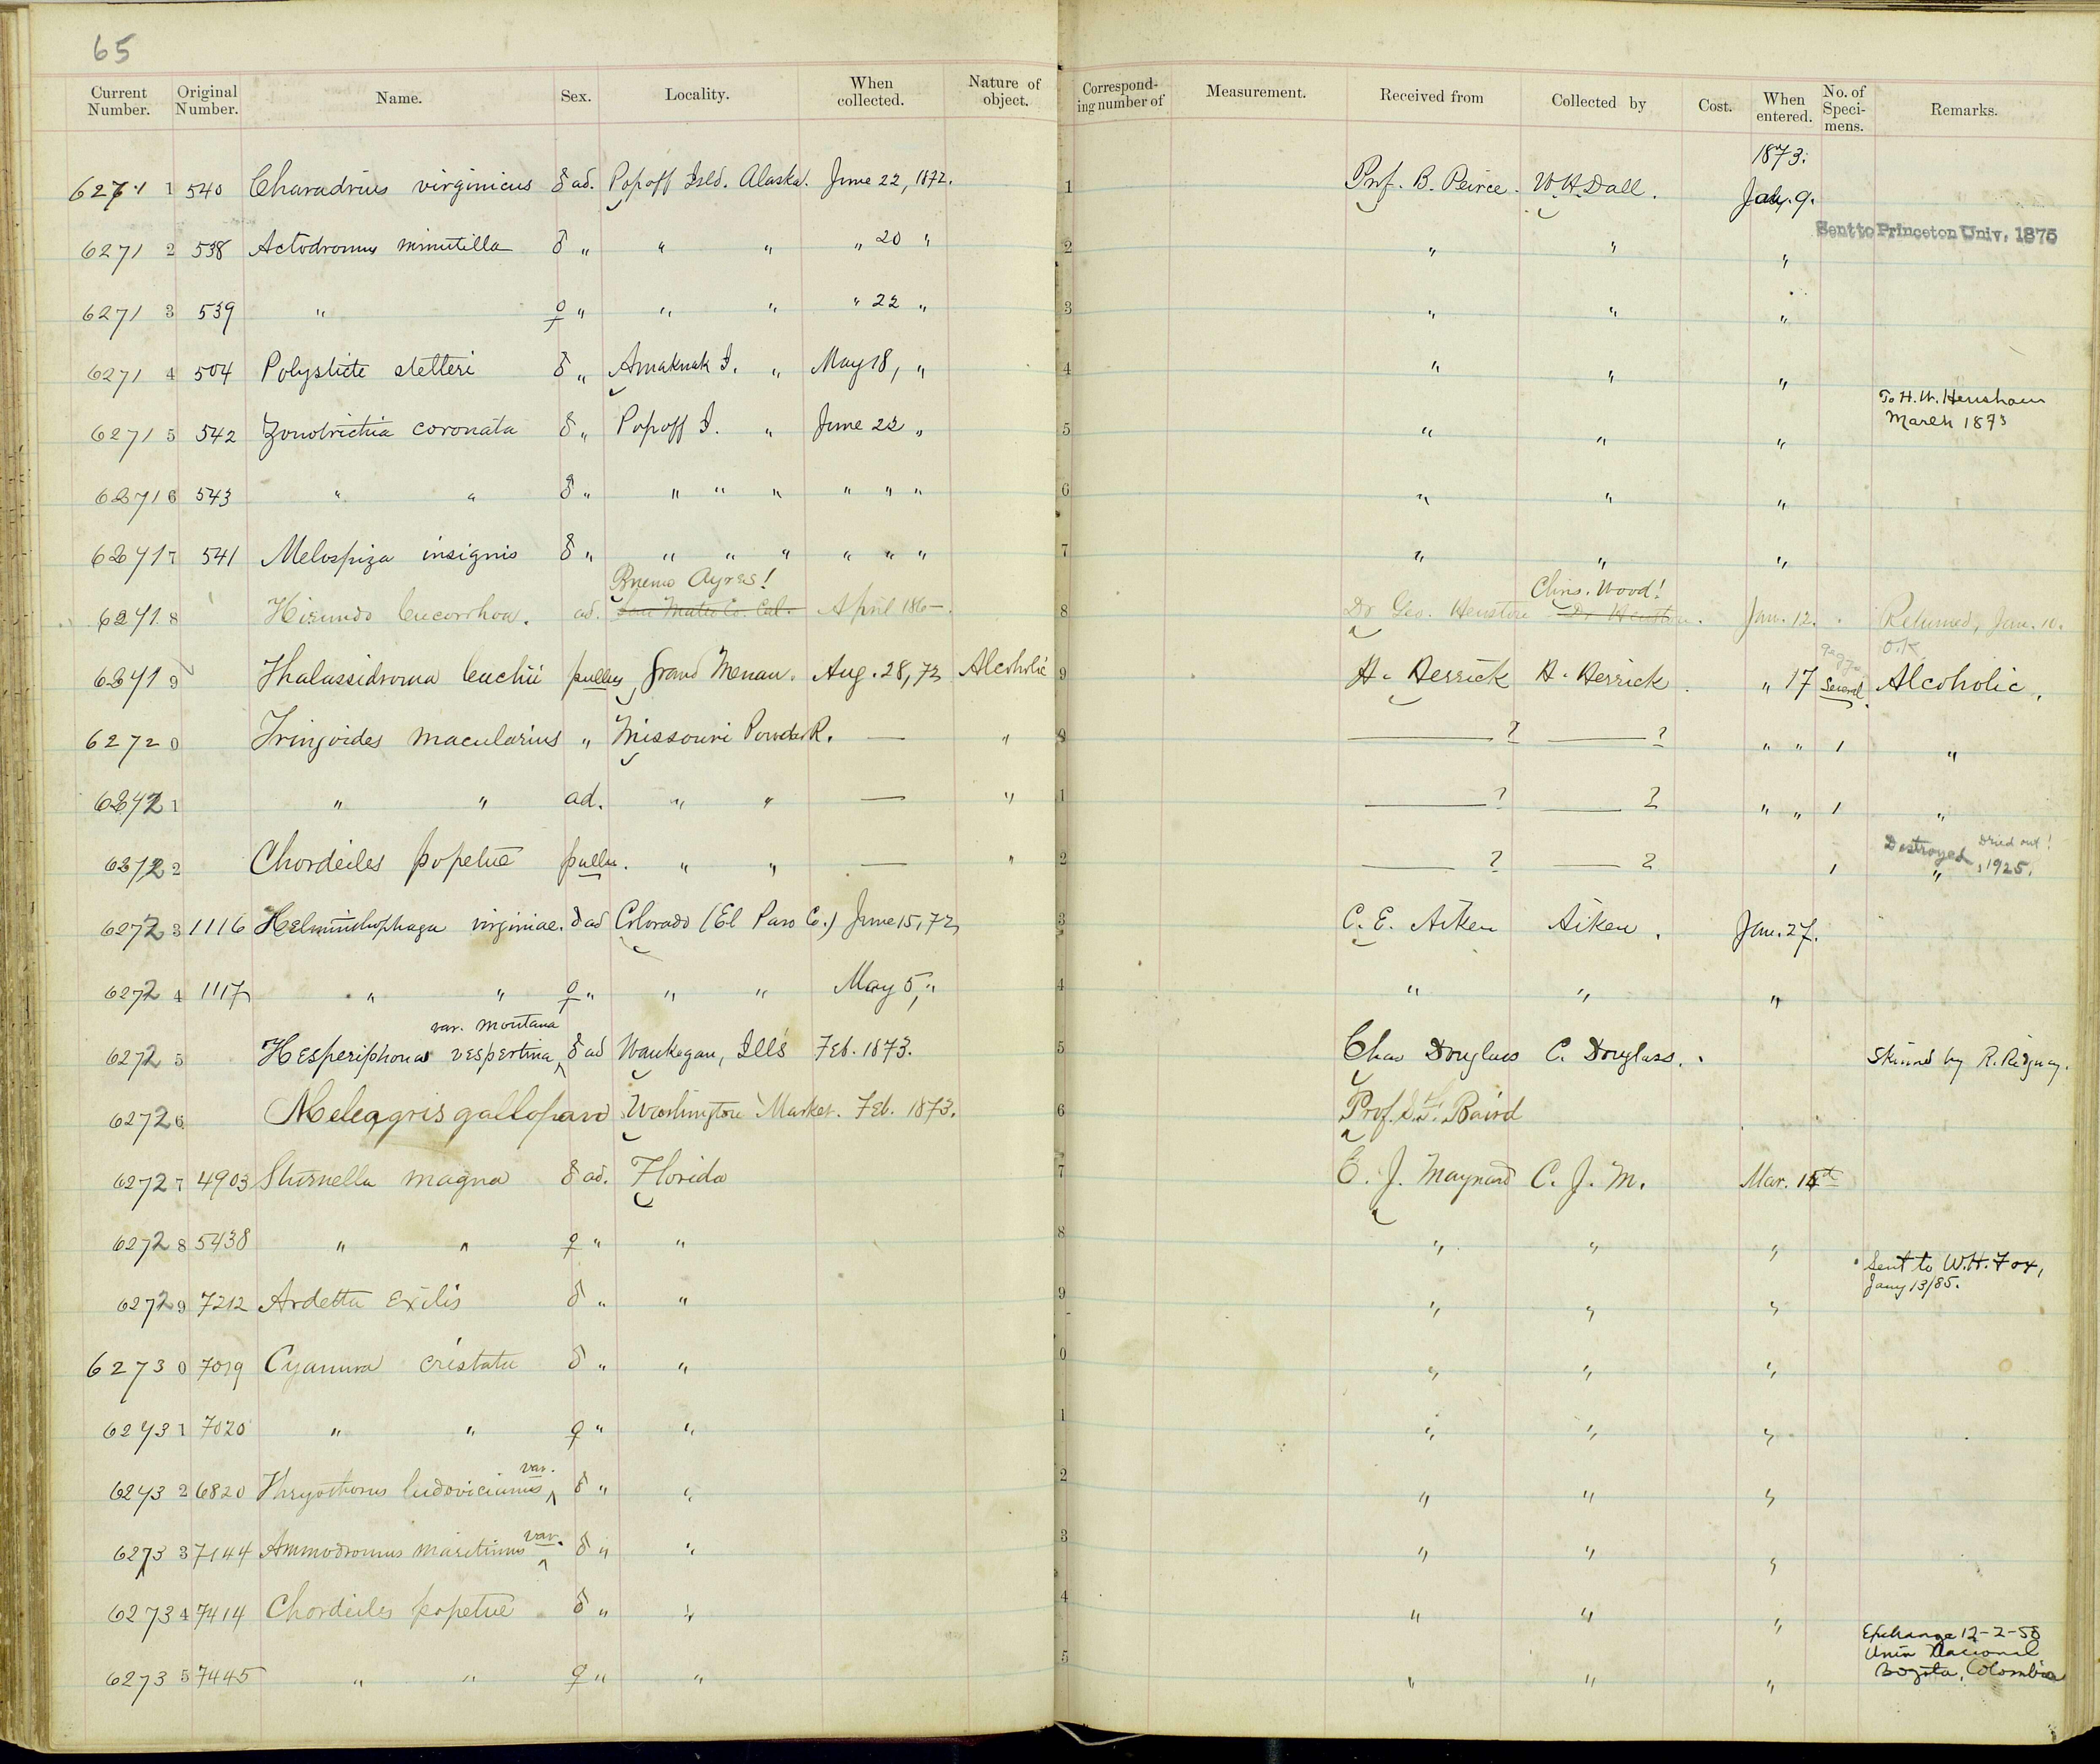 65
Current Number. Original Number. Name. Sex. Locality. When collected. Nature of object. Correspond-ing number of Measurement. Received from Collected by Cost. When entered. No. of Speci-mens. Remarks.
1873.
6271 1 540 Charadrius virginicus ♂ ad. Popoff Isld. Alaska. June 22, 1872. 1 Prof. B. Peirce. W. H. Dall. Jany. 9.
Sent to Princeton Univ. 1875
6271 2 538 Actodromus minutilla ♂ " " " " 20 " 2 " " "
6271 3 539 " ♀ " " " " 22 " 3 " " "
6271 4 504 Polysticte stelleri ♂ " Amaknak I. " May 18, " 4 " " "
To H. W. Henshaw
March 1873
6271 5 542 Zonotrichia coronata ♂ " Popoff I. " June 22 " 5 " " "
6271 6 543 " " ♂ " " " " " " " 6 " " "
6271 7 541 Melospiza insignis ♂ " " " " " " " 7 " " "
Buenos Ayres! Chas. Wood!
6271 8 Hirundo leucorrhoa. ad. San Mateo Co. Cal. April 186–. 8 Dr Geo. Heuston Dr Heuston. Jan. 12. Returned, Jan. 10.
O.K.
6271 9 Thalassidroma leachii pullus Grand Menan. Aug. 28, 72 Alcoholic 9 H. Herrick H. Herrick. " 17 Several Alcoholic.
6272 0 Tringoides macularius " Missouri Powder R. — " 0 — ? — ? " " 1 "
6272 1 " " ad. " " — " 1 — ? — ? " " 1 "
Destroyed Dried out!
6272 2 Chordeiles popetue pullus. " " — " 2 — ? — ? 1 " , 1925.
6272 3 1116 Helminthophaga virginiae. ♂ ad Colorado (El Paso Co.) June 15, 72 3 C. E. Aiken Aiken. Jan. 27.
6272 4 1117 " " ♀ " " " May 5, " 4 " " "
var. montana
6272 5 Hesperiphona vespertina ^ ♂ ad Waukegan, Ills Feb. 1873. 5 Chas Douglass C. Douglass. Skinned by R. Ridgway.
6272 6 Meleagris gallopavo Washington Market. Feb. 1873. 6 Prof. S. F. Baird
6272 7 4903 Sturnella magna ♂ ad. Florida 7 C. J. Maynard C. J. M. Mar. 14th
6272 8 5438 " " ♀ " " 8 " " "
Sent to W. H. Fox,
Jany 13/85.
6272 9 7212 Ardetta exilis ♂ " " 9 " " "
6273 0 7019 Cyanura cristata ♂ " " 0 " " "
6273 1 7020 " " ♀ " " 1 " " "
var.
6273 2 6820 Thryothorus ludovicianus ^ ♂ " " 2 " " "
var.
6273 3 7144 Ammodromus maritimus ^ ♂ " " 3 " " "
6273 4 7414 Chordeiles popetue ♂ " " 4 " " "
Exchange 12-2-58
Univ Nacional
Bogota, Colombia
6273 5 7445 " " ♀ " " 5 " " "